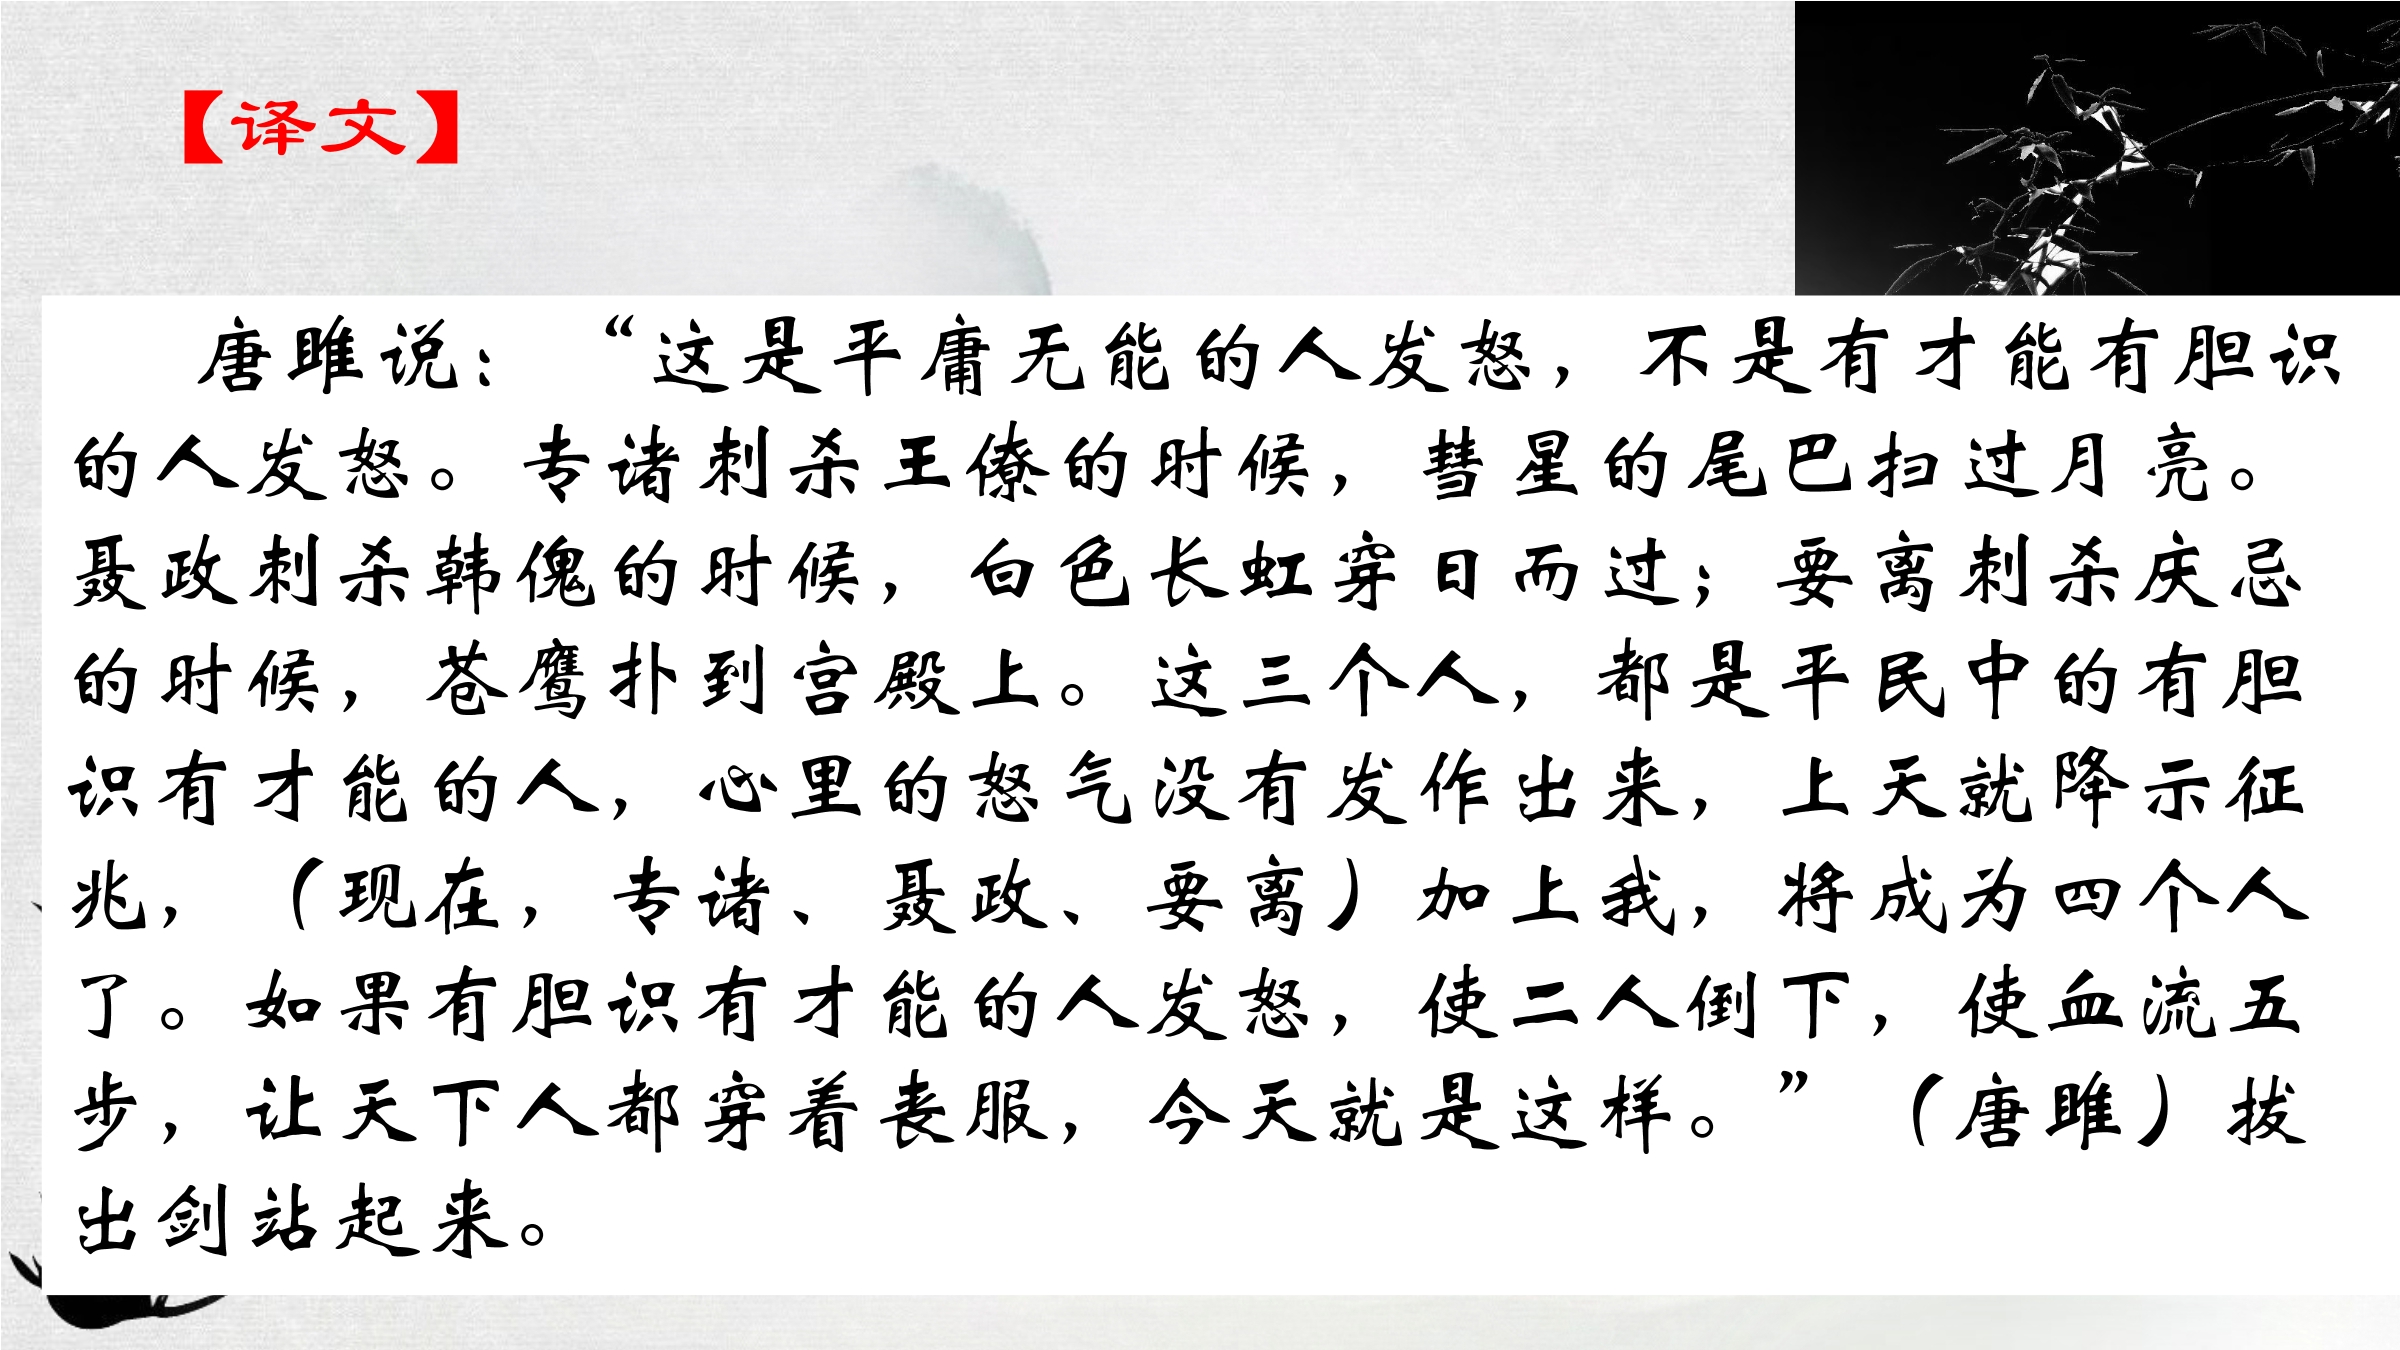 【译文】
唐雎说：“这是平庸无能的人发怒，不是有才能有胆识
的人发怒。专诸刺杀王僚的时候，彗星的尾巴扫过月亮。
聂政刺杀韩傀的时候，白色长虹穿日而过；要离刺杀庆忌
的时候，苍鹰扑到宫殿上。这三个人，都是平民中的有胆
识有才能的人，心里的怒气没有发作出来，上天就降示征
兆，（现在，专诸、聂政、要离）加上我，将成为四个人
了。如果有胆识有才能的人发怒，使二人倒下，使血流五
步，让天下人都穿着丧服，今天就是这样。”（唐雎）拔
出剑站起来。